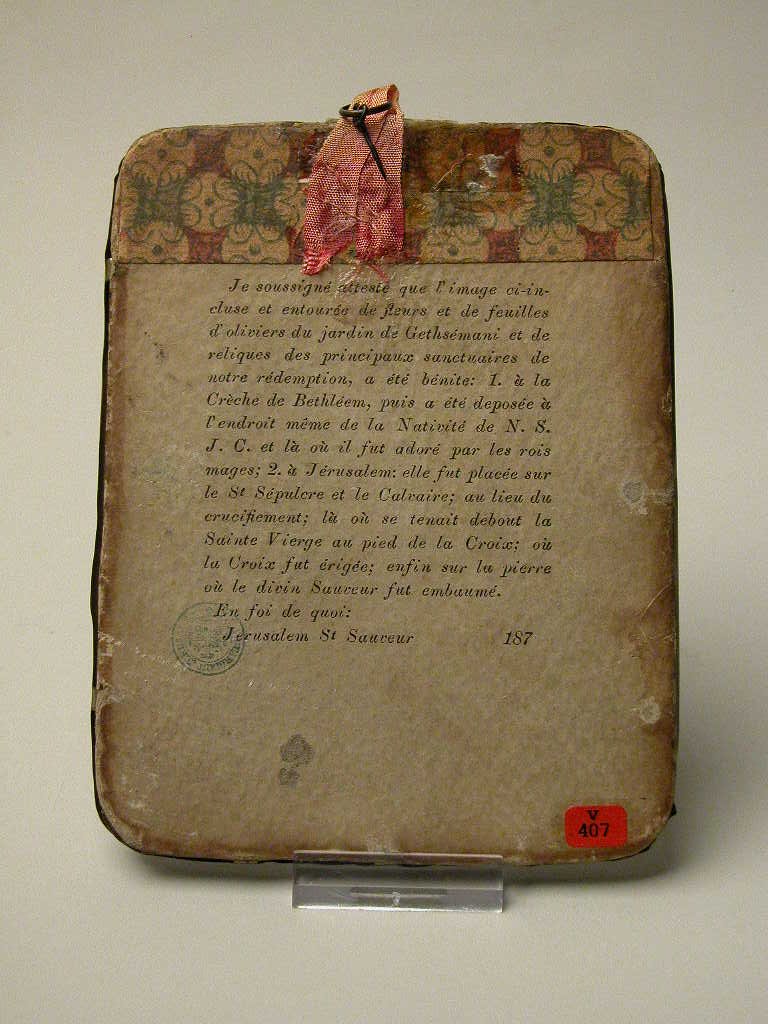 Je soussigné atteste que l'image ci-in-
cluse et entourée de fleurs et de feuilles
d'oliviers du jardin de Gethsémani et de
reliques des principaux sanctuaires de
notre rédemption, a été bénite: 1. à la
Crèche de Bethléem, puis a été deposée à
l'endroit même de la Nativité de N. S.
J. C. et là où il fut adoré par les rois
mages; 2. à Jérusalem: elle fut placée sur
le St Sépulcre et le Calvaire; au lieu du
crucifiement; là où se tenait debout la
Sainte Vierge au pied de la Croix; où
la Croix fut érigée; enfin sur la pierre
où le divin Sauveur fut embaumé.
En foi de quoi:
Jérusalem St Sauveur 187
V
407